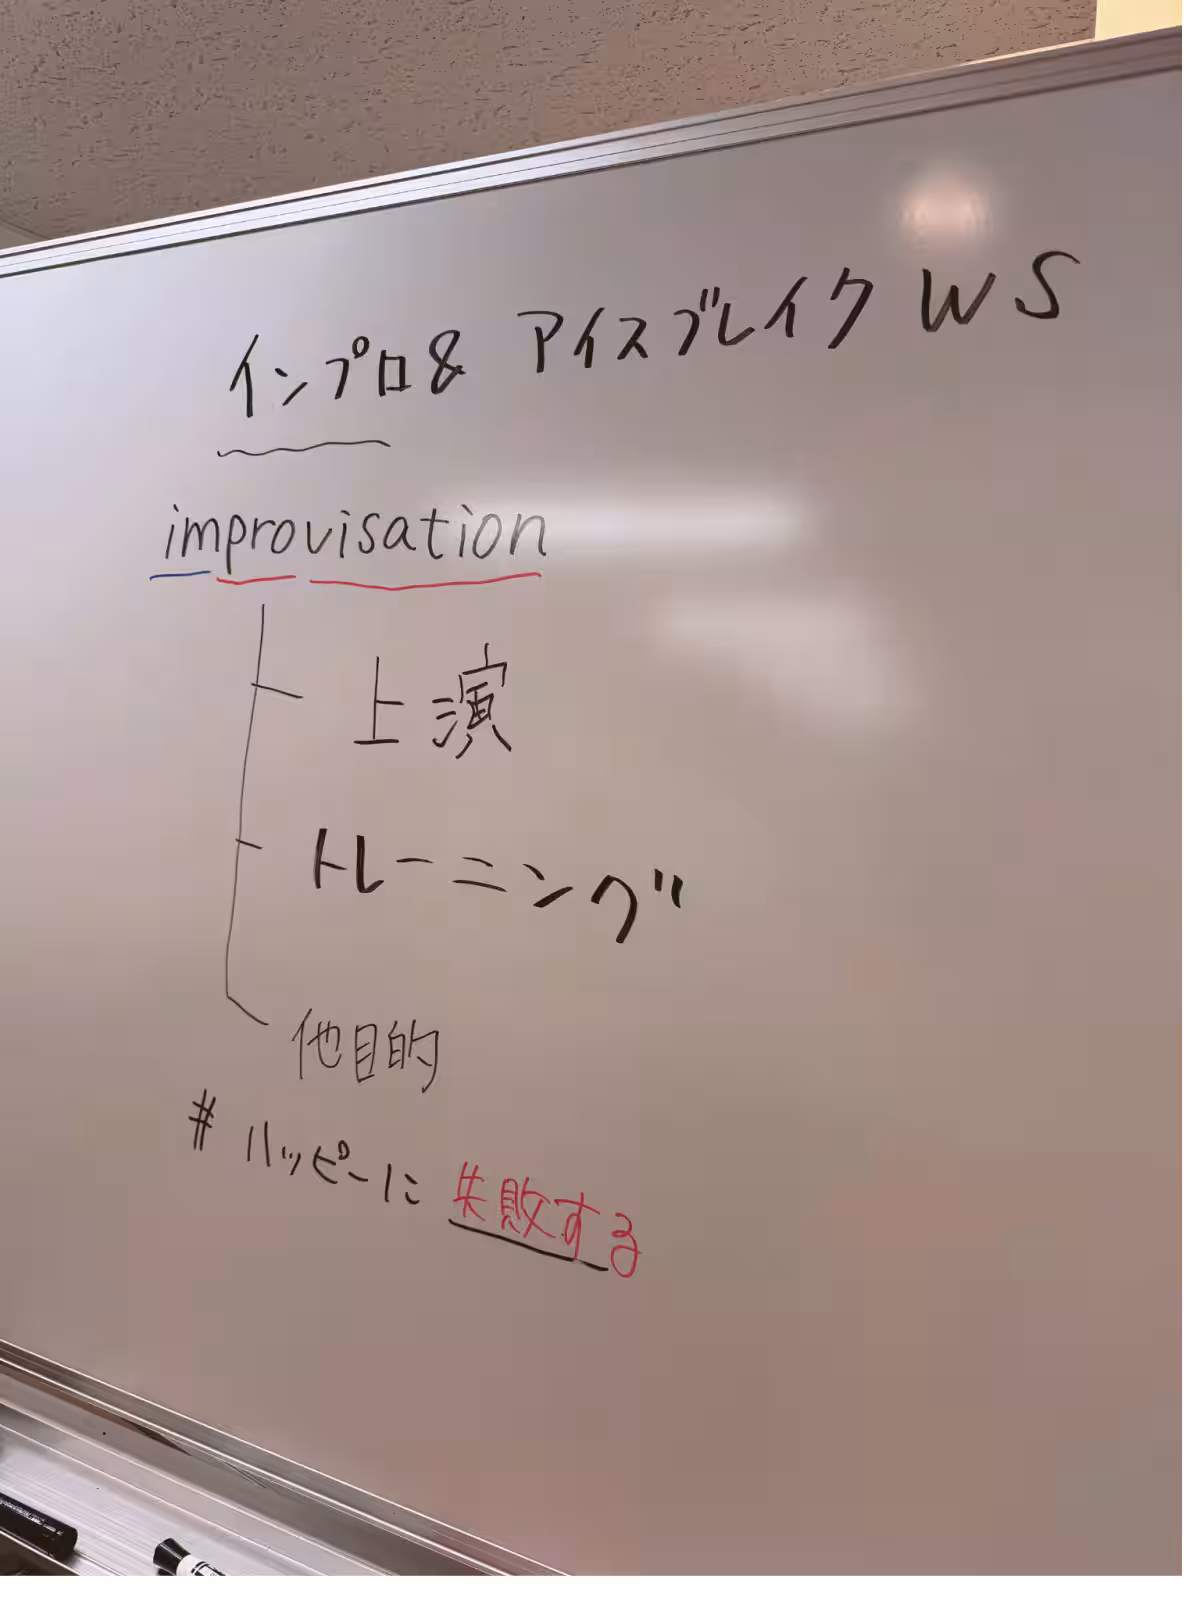 インプロ& アイスブレイク WS
improvisation
上演
トレーニング
他目的
# ハッピーに 失敗する